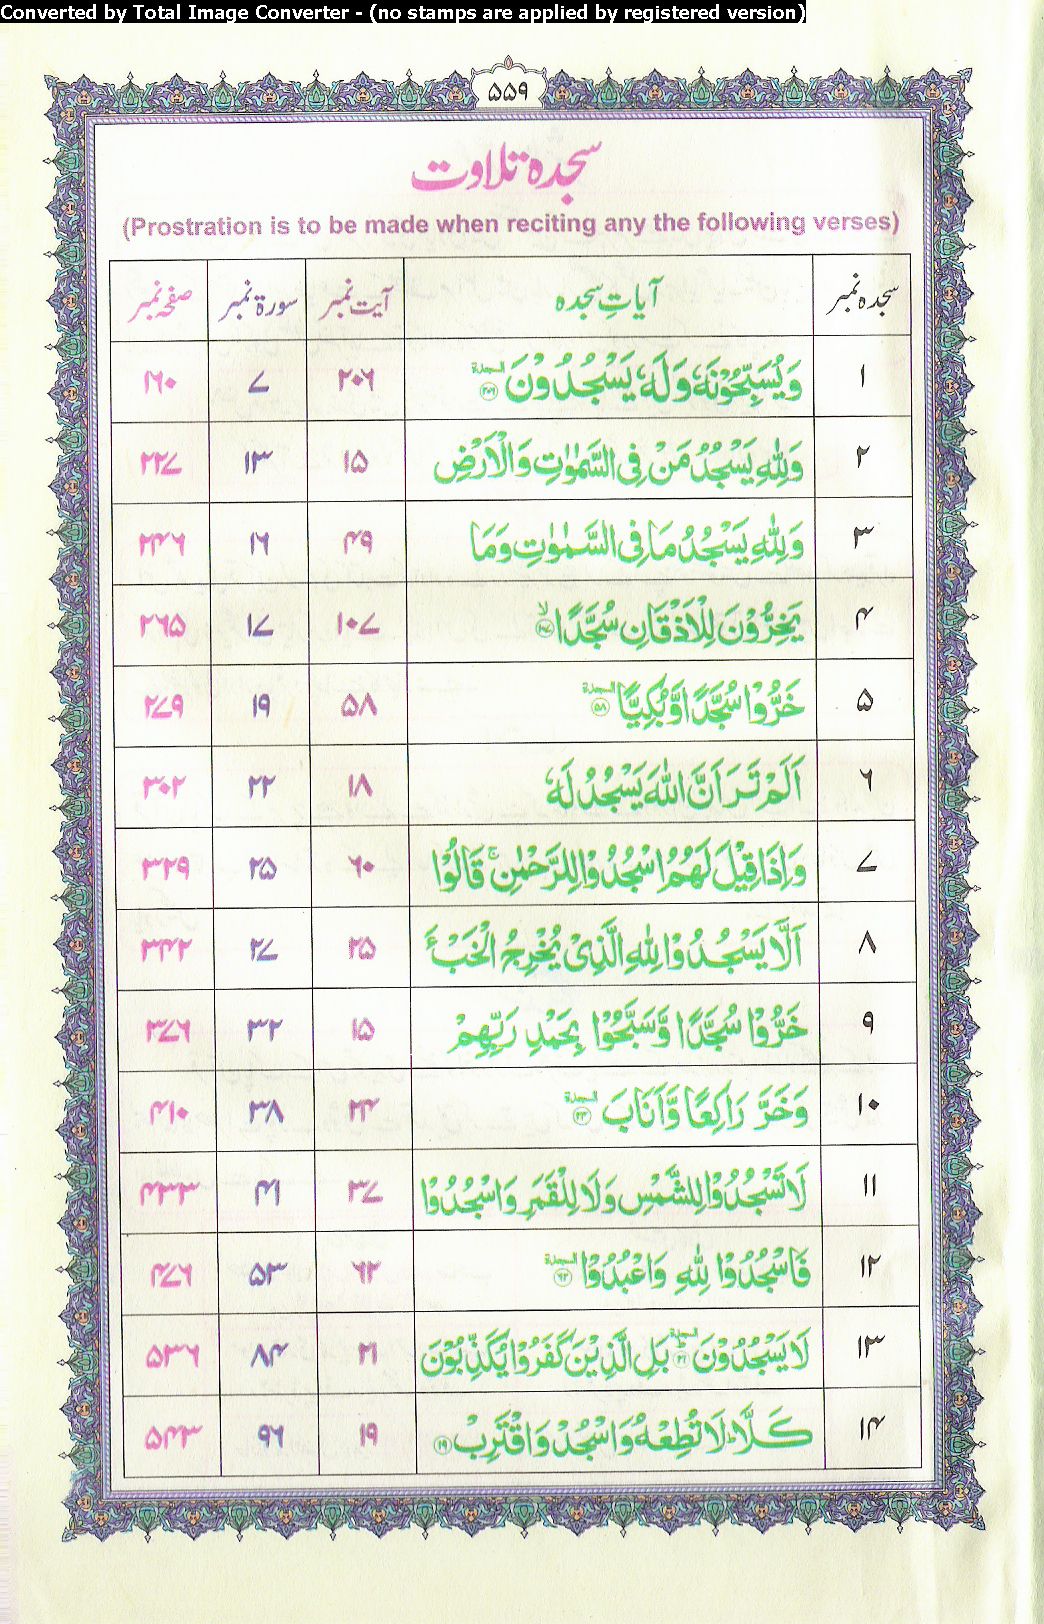 Converted by Total Image Converter - (no stamps are applied by registered version)
۵۵۹
سجدہ تلاوت
(Prostration is to be made when reciting any the following verses)
سجدہ نمبر آیاتِ سجدہ آیت نمبر سورۃ نمبر صفحہ نمبر
۱ وَيُسَبِّحُوْنَهٗ وَلَهٗ يَسْجُدُوْنَ السجدة ۲۰۶ ۲۰۶ ۷ ۱۶۰
۲ وَلِلّٰهِ يَسْجُدُ مَنْ فِى السَّمٰوٰتِ وَالْاَرْضِ ۱۵ ۱۳ ۲۲۷
۳ وَلِلّٰهِ يَسْجُدُ مَا فِى السَّمٰوٰتِ وَمَا ۴۹ ۱۶ ۲۴۶
۴ يَخِرُّوْنَ لِلْاَذْقَانِ سُجَّدًا ۙ ۱۰۷ ۱۰۷ ۱۷ ۲۶۵
۵ خَرُّوْا سُجَّدًا وَّبُكِيًّا السجدة ۵۸ ۵۸ ۱۹ ۲۷۹
۶ اَلَمْ تَرَ اَنَّ اللّٰهَ يَسْجُدُ لَهٗ ۱۸ ۲۲ ۳۰۲
۷ وَاِذَا قِيْلَ لَهُمُ اسْجُدُوْا لِلرَّحْمٰنِ ۚ قَالُوْا ۶۰ ۲۵ ۳۲۹
۸ اَلَّا يَسْجُدُوْا لِلّٰهِ الَّذِىْ يُخْرِجُ الْخَبْءَ ۲۵ ۲۷ ۳۴۲
۹ خَرُّوْا سُجَّدًا وَّسَبَّحُوْا بِحَمْدِ رَبِّهِمْ ۱۵ ۳۲ ۳۷۶
۱۰ وَخَرَّ رَاكِعًا وَّاَنَابَ السجدة ۲۴ ۲۴ ۳۸ ۴۱۰
۱۱ لَا تَسْجُدُوْا لِلشَّمْسِ وَلَا لِلْقَمَرِ وَاسْجُدُوْا ۳۷ ۴۱ ۴۳۳
۱۲ فَاسْجُدُوْا لِلّٰهِ وَاعْبُدُوْا السجدة ۶۲ ۶۲ ۵۳ ۴۷۶
۱۳ لَا يَسْجُدُوْنَ السجدة ۲۱ بَلِ الَّذِيْنَ كَفَرُوْا يُكَذِّبُوْنَ ۲۱ ۸۴ ۵۳۶
۱۴ كَلَّا ؕ لَا تُطِعْهُ وَاسْجُدْ وَاقْتَرِبْ ۱۹ ۱۹ ۹۶ ۵۴۳